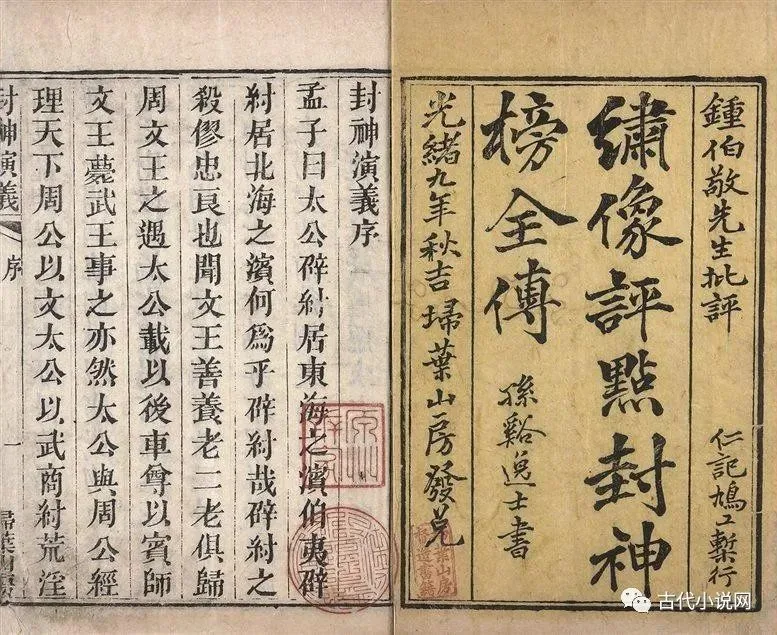 鍾伯敬先生批評
仁記鳩工槧行
繡像評點封神
榜全傳
孫谿逸士書
光緒九年秋吉埽葉山房發兌
封神演義序
孟子曰太公辟紂居東海之濱伯夷辟
紂居北海之濱何爲乎辟紂哉辟紂之
殺僇忠良也聞文王善養老二老俱歸
周文王之遇太公載以後車尊以賓師
文王薨武王事之亦然太公與周公經
理天下周公以文太公以武商紂荒淫
封神演義
序
一
古代小说网